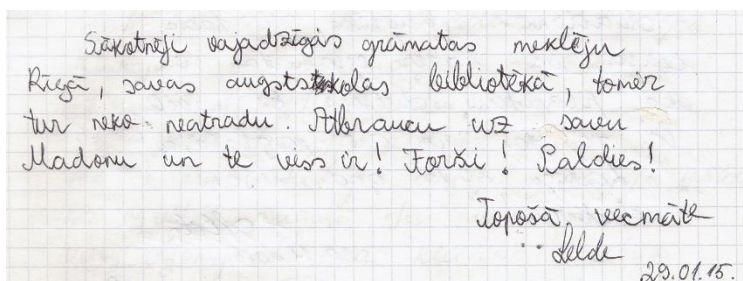 Sākotnēji vajadzīgās grāmatas meklēju
Rīgā, savas augstskolas bibliotēkā, tomēr
tur neko neatradu. Atbraucu uz savu
Madonu un te viss ir! Forši! Paldies!
Topošā vecmāte
Lelde
29.01.15.